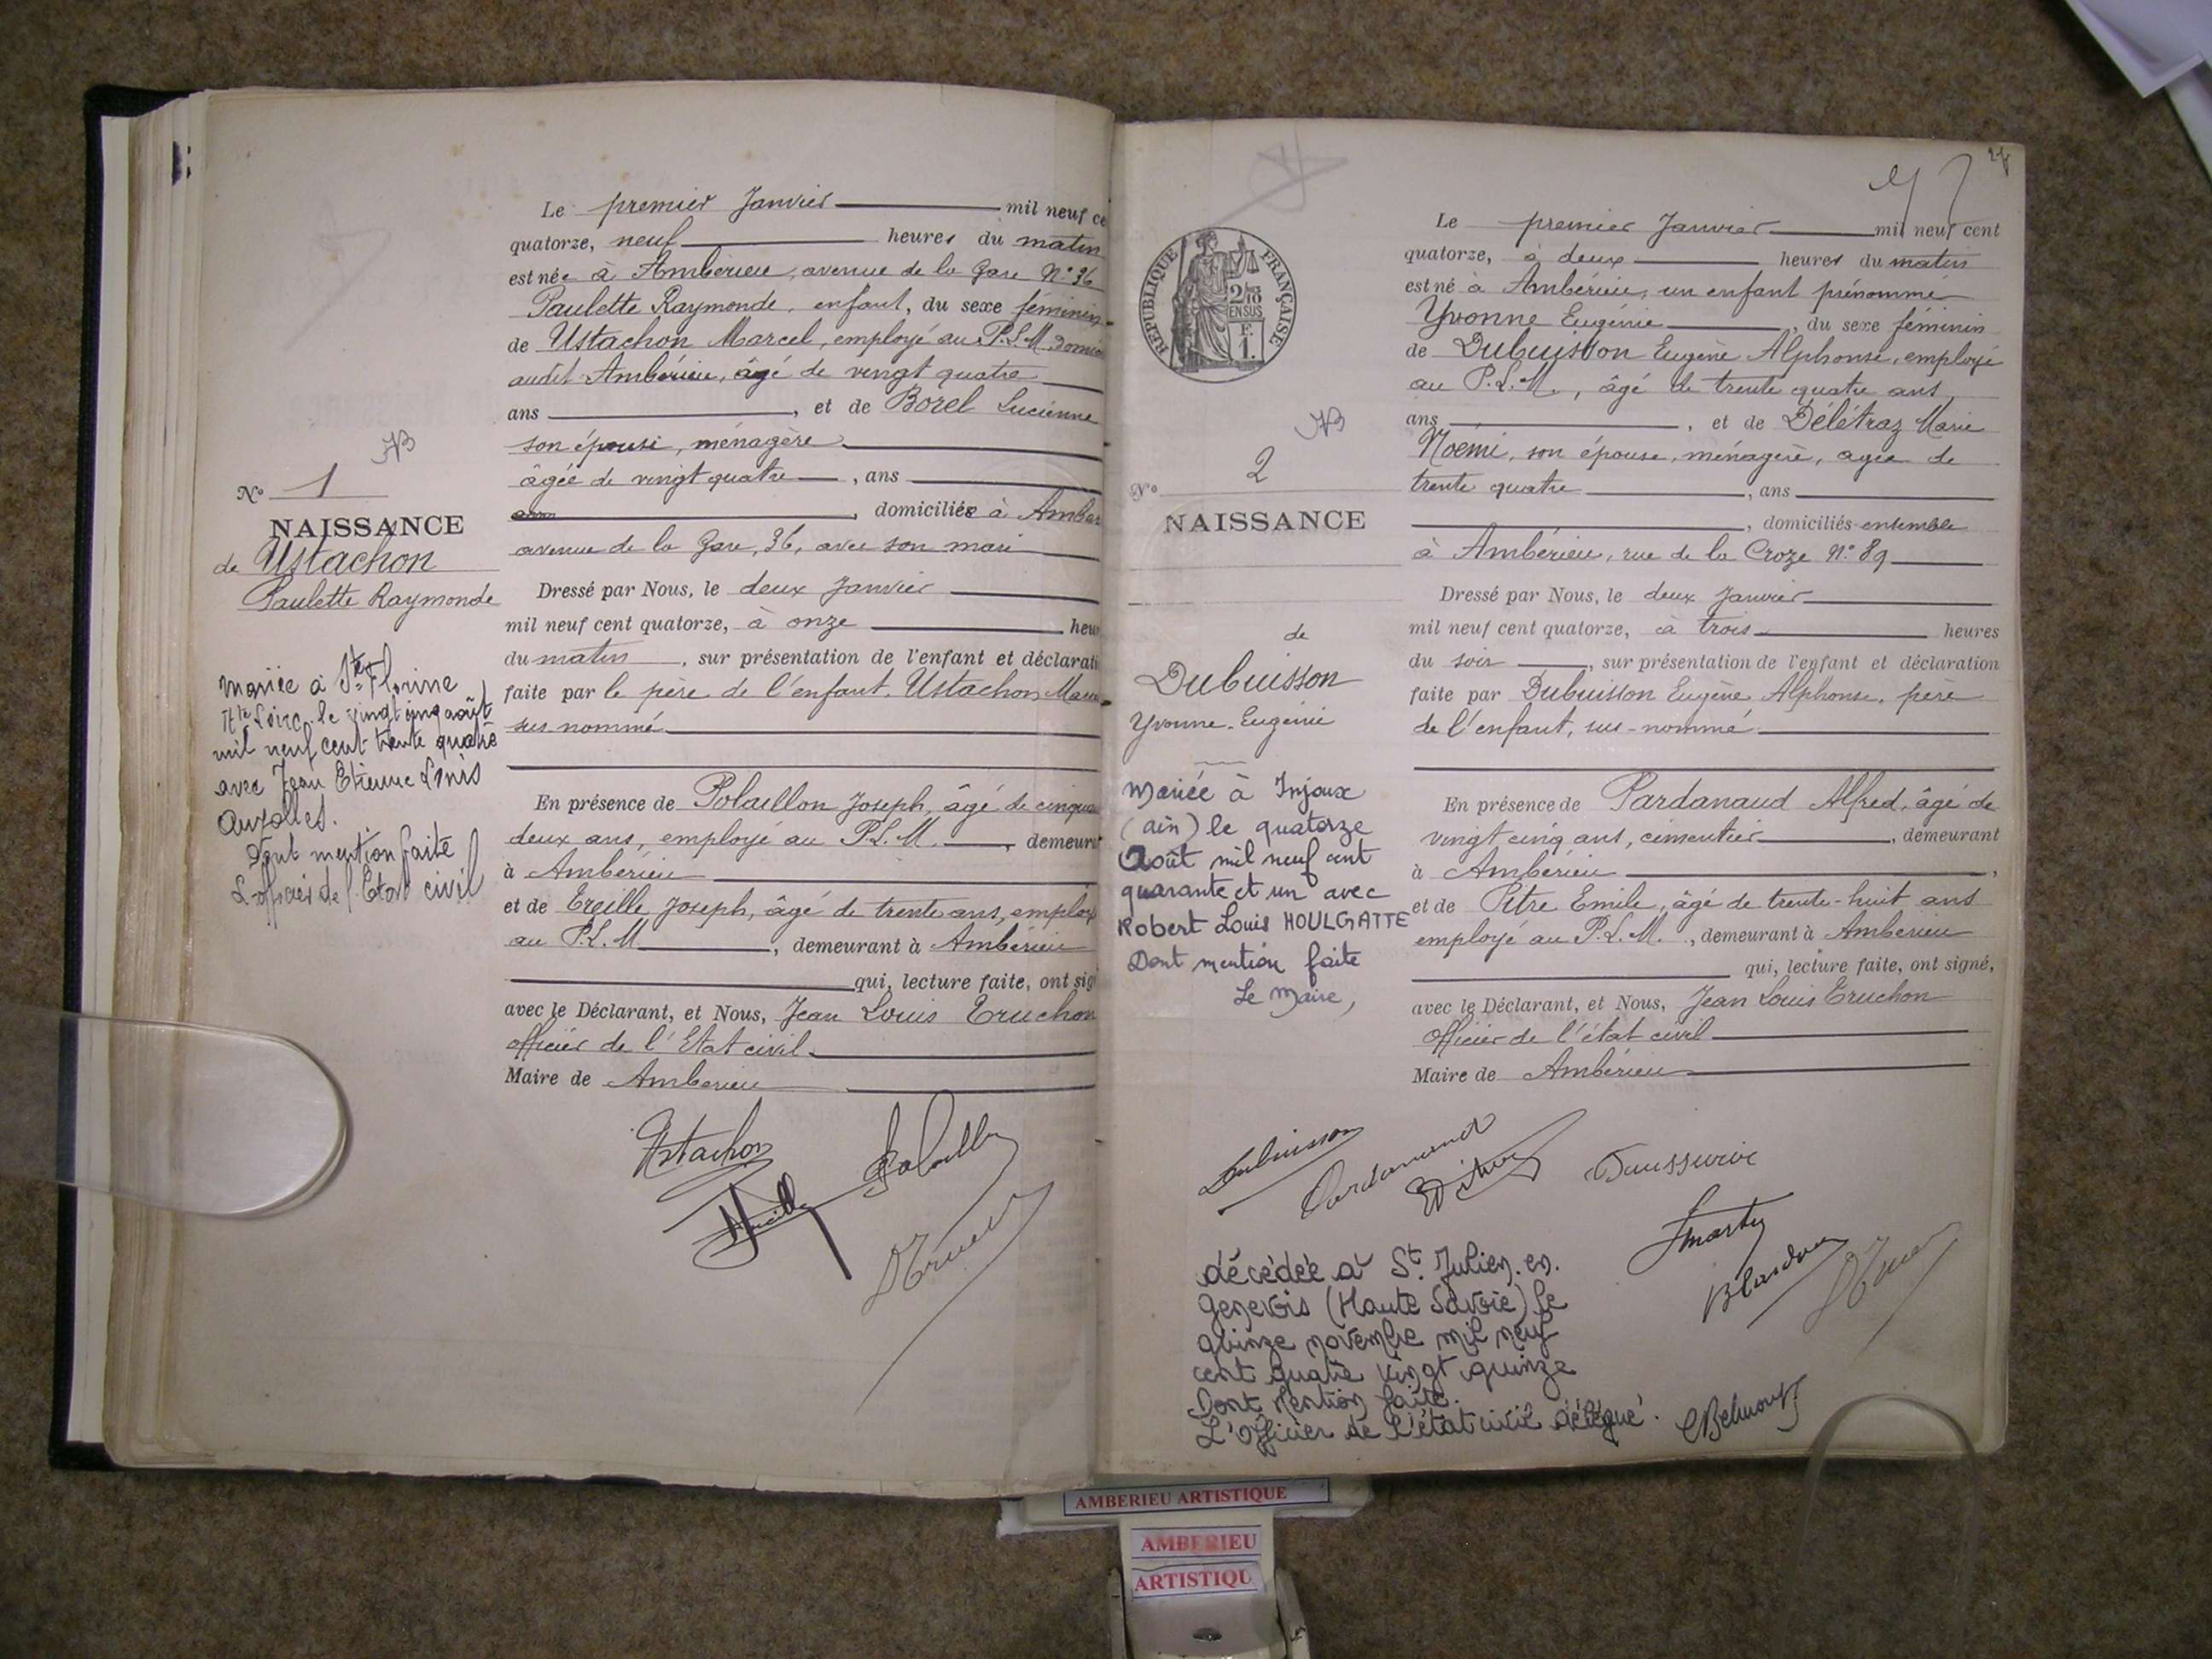 Le premier Janvier mil neuf ce
quatorze, neuf heures du matin
est née à Ambérieu, avenue de la Gare N° 36
Paulette Raymonde, enfant, du sexe féminin
de Ustachon Marcel, employé au P.L.M. domic
audit Ambérieu, âgé de vingt quatre
ans , et de Borel Lucienne
son épouse, ménagère
âgée de vingt quatre , ans
, domiciliée à Amber
avenue de la Gare, 36, avec son mari
N° 1
NAISSANCE
de Ustachon
Paulette Raymonde
Dressé par Nous, le deux Janvier
mil neuf cent quatorze, à onze heur
du matin , sur présentation de l'enfant et déclarati
faite par le père de l'enfant, Ustachon Marc
sus nommé
Mariée à Ste Florine
Hte Loire le vingt cinq août
mil neuf cent trente quatre
avec Jean Etienne
Auzolles.
Dont mention faite
L'officier de l'Etat civil
En présence de Polaillon Joseph, âgé de cinqua
deux ans, employé au P.L.M. , demeura
à Ambérieu
et de Treille Joseph, âgé de trente ans, employé
au P.L.M , demeurant à Ambérieu
qui, lecture faite, ont sig
avec le Déclarant, et Nous, Jean Louis Truchon
officier de l'Etat civil
Maire de Amberieu
Ustachon
RÉPUBLIQUE FRANÇAISE
2/10 EN SUS
F. 1.
Le premier Janvier mil neuf cent
quatorze, à deux heures du matin
est né à Ambérieu, un enfant prénommé
Yvonne Eugénie , du sexe féminin
de Dubuisson Eugène Alphonse, employé
au P.L.M., âgé de trente quatre ans
ans , et de Délétraz Marie
Noémi, son épouse, ménagère, agée de
trente quatre , ans
, domiciliés ensemble
à Ambérieu, rue de la Croze N° 89
N° 2
NAISSANCE
de
Dubuisson
Yvonne-Eugénie
Dressé par Nous, le deux Janvier
mil neuf cent quatorze, à trois heures
du soir , sur présentation de l'enfant et déclaration
faite par Dubuisson Eugène Alphonse, père
de l'enfant, sus-nommé
Mariée à Injoux
(ain) le quatorze
Août mil neuf cent
quarante et un avec
Robert Louis HOULGATTE
Dont mention faite
Le Maire,
En présence de Pardanaud Alfred, âgé de
vingt cinq ans, cimentier , demeurant
à Ambérieu ,
et de Pitre Emile, âgé de trente-huit ans
employé au P.L.M. , demeurant à Ambérieu
qui, lecture faite, ont signé,
avec le Déclarant, et Nous, Jean Louis Truchon
Officier de l'état civil
Maire de Ambérieu
Dubuisson
décédée à St. Julien. en.
Genevois (Haute Savoie) le
quinze novembre mil neuf
cent quatre vingt quinze
Dont Mention faite.
L'officier de l'état civil délégué.
AMBERIEU ARTISTIQUE
AMBERIEU
ARTISTIQU